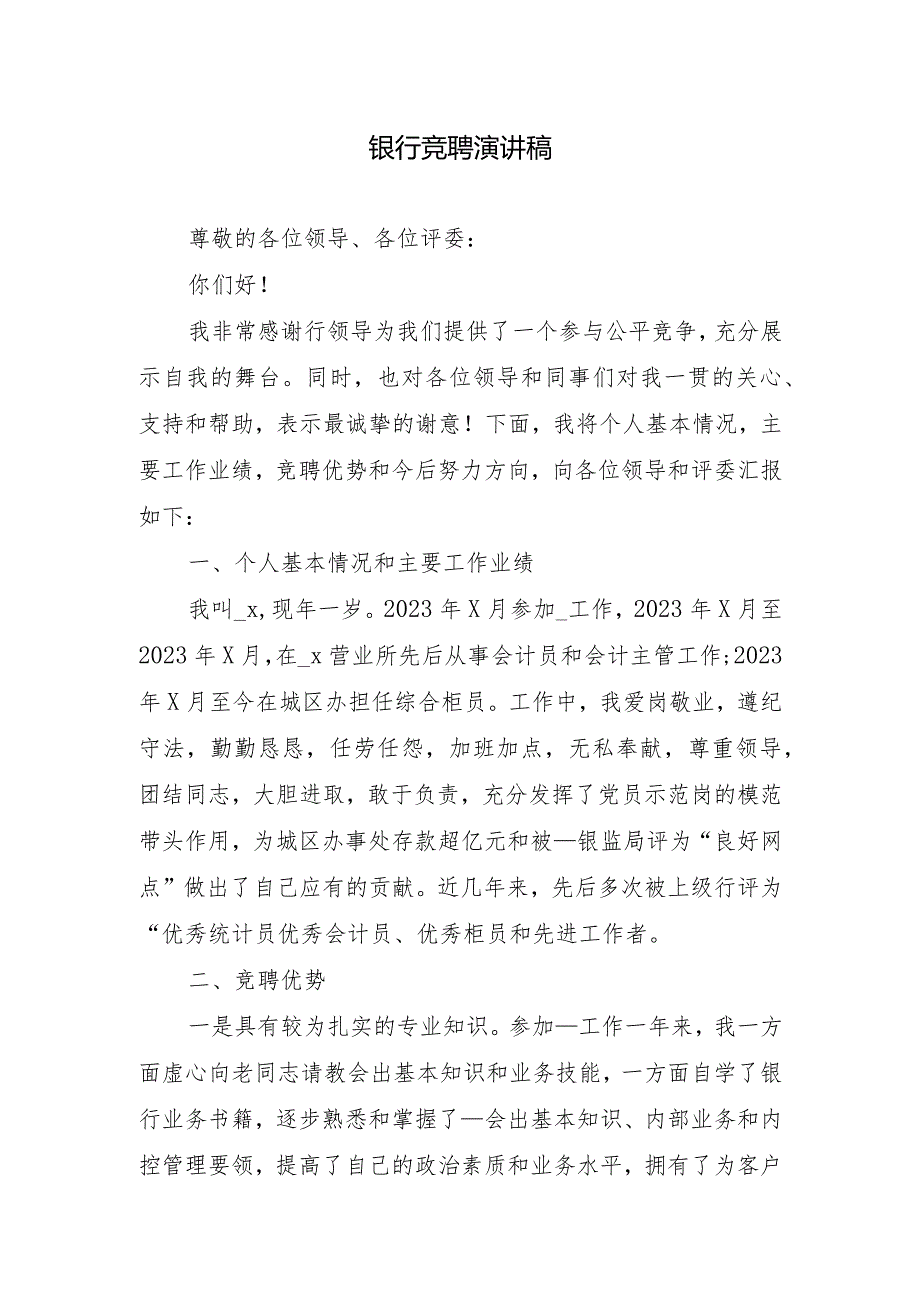 银行竞聘演讲稿
尊敬的各位领导、各位评委：
你们好！
我非常感谢行领导为我们提供了一个参与公平竞争，充分展
示自我的舞台。同时，也对各位领导和同事们对我一贯的关心、
支持和帮助，表示最诚挚的谢意！下面，我将个人基本情况，主
要工作业绩，竞聘优势和今后努力方向，向各位领导和评委汇报
如下：
一、个人基本情况和主要工作业绩
我叫_x,现年一岁。2023 年 X 月参加_工作，2023 年 X 月至
2023 年 X 月,在_x 营业所先后从事会计员和会计主管工作;2023
年 X 月至今在城区办担任综合柜员。工作中，我爱岗敬业，遵纪
守法，勤勤恳恳，任劳任怨，加班加点，无私奉献，尊重领导，
团结同志，大胆进取，敢于负责，充分发挥了党员示范岗的模范
带头作用，为城区办事处存款超亿元和被—银监局评为“良好网
点”做出了自己应有的贡献。近几年来，先后多次被上级行评为
“优秀统计员优秀会计员、优秀柜员和先进工作者。
二、竞聘优势
一是具有较为扎实的专业知识。参加—工作一年来，我一方
面虚心向老同志请教会出基本知识和业务技能，一方面自学了银
行业务书籍，逐步熟悉和掌握了—会出基本知识、内部业务和内
控管理要领，提高了自己的政治素质和业务水平，拥有了为客户